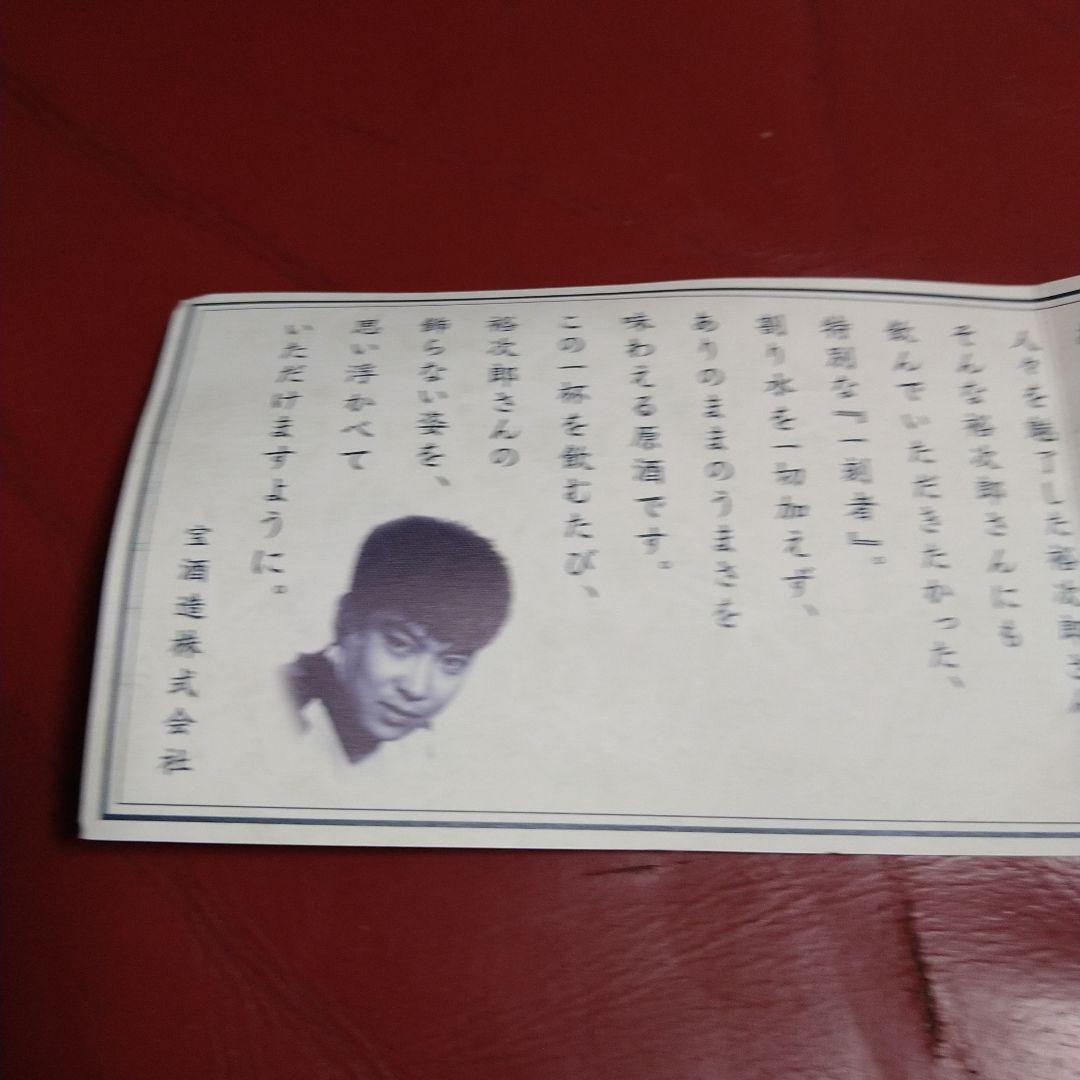 人々を魅了した裕次郎さん
そんな裕次郎さんにも
飲んでいただきたかった、
特別な『一刻者』。
割り水を一切加えず、
ありのままのうまさを
味わえる原酒です。
この一杯を飲むたび、
裕次郎さんの
飾らない姿を、
思い浮かべて
いただけますように。
宝酒造株式会社